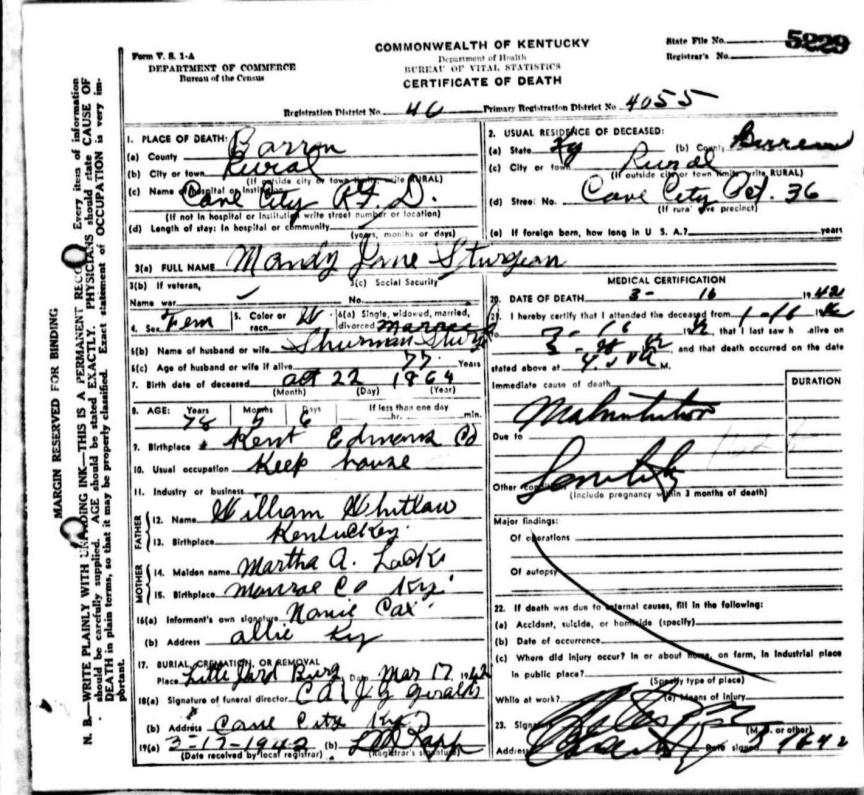 Form V. S. 1-A
DEPARTMENT OF COMMERCE
Bureau of the Census
COMMONWEALTH OF KENTUCKY
Department of Health
BUREAU OF VITAL STATISTICS
CERTIFICATE OF DEATH
State File No. 5229
Registrar's No.
Registration District No. 46 Primary Registration District No. 4055
MARGIN RESERVED FOR BINDING
N. B.—WRITE PLAINLY WITH UNFADING INK—THIS IS A PERMANENT RECORD. Every item of information
should be carefully supplied. AGE should be stated EXACTLY. PHYSICIANS should state CAUSE OF
DEATH in plain terms, so that it may be properly classified. Exact statement of OCCUPATION is very im-
portant.
1. PLACE OF DEATH:
(a) County Barron
(b) City or town Rural
(If outside city or town limits write RURAL)
(c) Name of hospital or institution
Cave City R.F.D.
(If not in hospital or institution write street number or location)
(d) Length of stay: In hospital or community
(years, months or days)
2. USUAL RESIDENCE OF DECEASED:
(a) State Ky (b) County Barren
(c) City or town Rural
(If outside city or town limits write RURAL)
(d) Street No. Cave City Pct. 36
(If rural give precinct)
(e) If foreign born, how long in U. S. A.? years
3(a) FULL NAME Mandy Jane Sturgeon
3(b) If veteran, 3(c) Social Security
Name war No.
4. Sex Fem 5. Color or race W 6(a) Single, widowed, married, divorced Married
6(b) Name of husband or wife Shurman
6(c) Age of husband or wife if alive 77 Years
7. Birth date of deceased Oct 22 1864
(Month) (Day) (Year)
8. AGE: Years Months Days If less than one day
78 5 6 hr. min.
9. Birthplace Kent Edmons Co
10. Usual occupation Keep house
11. Industry or business
FATHER
12. Name William Whitlow
13. Birthplace Kentuckey
MOTHER
14. Maiden name Martha A.
15. Birthplace Monroe Co Ky.
16(a) Informant's own signature Nannie Cox
(b) Address Allie Ky
17. BURIAL, CREMATION, OR REMOVAL
Place Date Mar 17 1942
18(a) Signature of funeral director
(b) Address Cave City Ky
19(a) 3-17-1942 (b)
(Date received by local registrar) (Registrar's signature)
MEDICAL CERTIFICATION
20. DATE OF DEATH 3- 16 1942
21. I hereby certify that I attended the deceased from
to that I last saw h alive on
and that death occurred on the date
stated above at M.
Immediate cause of death DURATION
Malnutrition
Due to
Other conditions Senility
(Include pregnancy within 3 months of death)
Major findings:
Of operations
Of autopsy
22. If death was due to external causes, fill in the following:
(a) Accident, suicide, or homicide (specify)
(b) Date of occurrence
(c) Where did injury occur? In or about home, on farm, in industrial place
in public place?
(Specify type of place)
While at work? (e) Means of injury
23. Signature
(M.D. or other)
Address Date signed